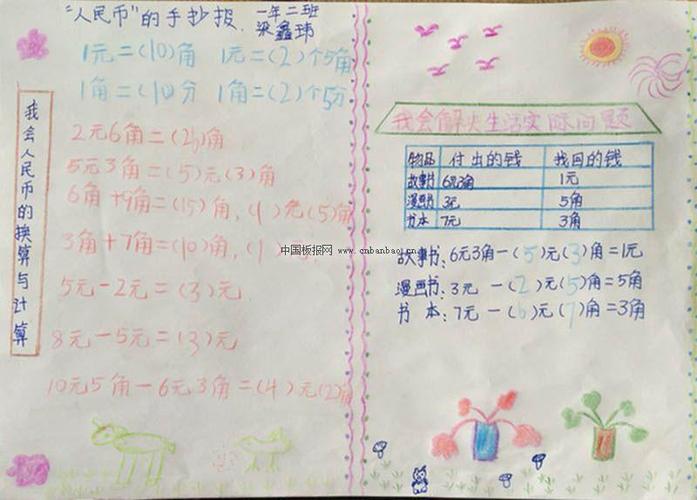 “人民币”的手抄报.
一年二班
梁鑫玮
我会人民币的换算与计算
1元=(10)角 1元=(2)个5角
1角=(10)分 1角=(2)个5分
2元6角=(26)角
5元3角=(5)元(3)角
6角+9角=(15)角,(1)元(5)角
3角+7角=(10)角,(1)
5元-2元=(3)元
8元-5元=(3)元
10元5角-6元3角=(4)元(2)角
中国板报网 www.cnbanbao.cn
我会解决生活实际问题
物品 付出的钱 找回的钱
故事书 6元3角 1元
漫画书 3元 5角
书本 7元 3角
故事书:6元3角-(5)元(3)角=1元
漫画书:3元-(2)元(5)角=5角
书本:7元-(6)元(7)角=3角